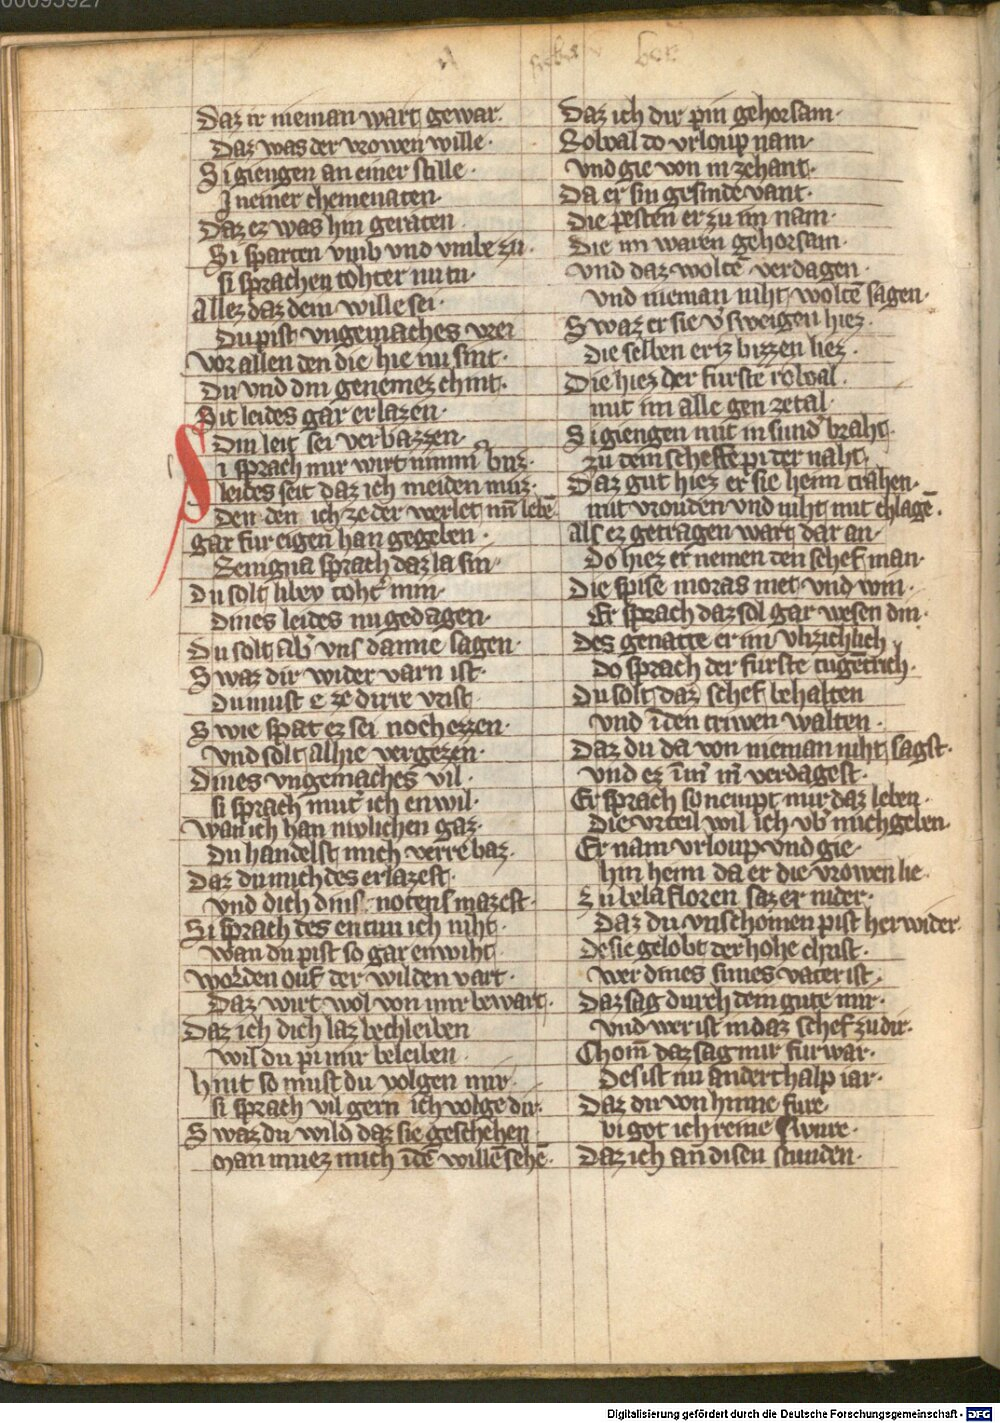 00095927
Daz ir nieman wart gewar.
Daz was der vrowen wille.
Si giengen an einer stille.
In einer chemenaten.
Daz ez was hin geraten.
Si sparten vmb vnd vmbe zu.
si sprachen tohter nu tu.
Allez daz dem wille sei.
Du pist vngemaches vrei
Vor allen den die hie nu sint.
Du vnd din genemez chint.
Sit leides gar erlazen.
Din leit sei verbazzen.
Si sprach mir wirt nimm̄ buz.
leides seit daz ich meiden muz.
Den den ich ze der werlet mī lebē
gar fur eigen han gegeben.
Benigna sprach daz la sin
Du solt libev toht' min.
dines leides nu gedagen.
Du solt ab' vns danne sagen.
Swaz dir wider varn ist.
du must e ze dirre vrist
Swie spat ez sei noch ezzen.
vnd solt alhie vergezen.
Dines vngemaches vil.
si sprach mut' ich enwil.
Wan ich han niwlichen gaz.
Du handelst mich verre baz.
Daz du mich des erlazest.
vnd dich dins notens mazest.
Si sprach des entun ich niht.
wan du pist so gar enwiht
worden ouf der wilden vart.
Daz wirt wol von mir bewart.
Daz ich dich laz bechleiben
wil du pi mir beleiben.
hint so must du volgen mir.
si sprach vil gern ich volge dir.
Swaz du wild daz sie geschehen
man muez mich ī dē willē sehē.
Daz ich dir pin gehorsam.
Solval do vrloup nam.
vnd gie von in zehant.
Da er sin gesinde vant.
Die pesten er zu im nam.
Die im waren gehorsam.
vnd daz woltē verdagen.
vnd nieman niht woltē sagen.
Swaz er sie v'sweigen hiez.
die selben er iz bizzen liez.
Die hiez der furste rolval.
mit im alle gen zetal.
Si giengen mit in sund' braht.
zu dem scheffe pi der naht.
Daz gut hiez er sie heim trahen.
mit vrouden vnd niht mit chlagē.
Als ez getragen wart dar an.
Do hiez er nemen den schef man.
Die spise moras met vnd win.
Er sprach daz sol gar wesen din.
Des genatte er im vlizichlich
Do sprach der furste tugētrich.
Du solt daz schef behalten
vnd ī den triwen walten.
Daz du da von nieman niht sagst.
vnd ez verdagest.
Er sprach so nempt mir daz leben.
Die vrteil wil ich vb' mich geben.
Er nam vrloup vnd gie.
hin heim da er die vrowen lie.
zu belafloren saz er nider.
Daz du vnschomen pist her wider.
De sie gelobt der hohe christ.
wer dines sunes vater ist.
Daz sag durch dein gute mir.
vnd wer ist in daz schef zu dir.
Chom̄ daz sag mir fur war.
Des ist nu anderthalp iar.
Daz du von hinne fure.
bi got ich reine swure.
Daz ich an disen stunden.
Digitalisierung gefördert durch die Deutsche Forschungsgemeinschaft - DFG